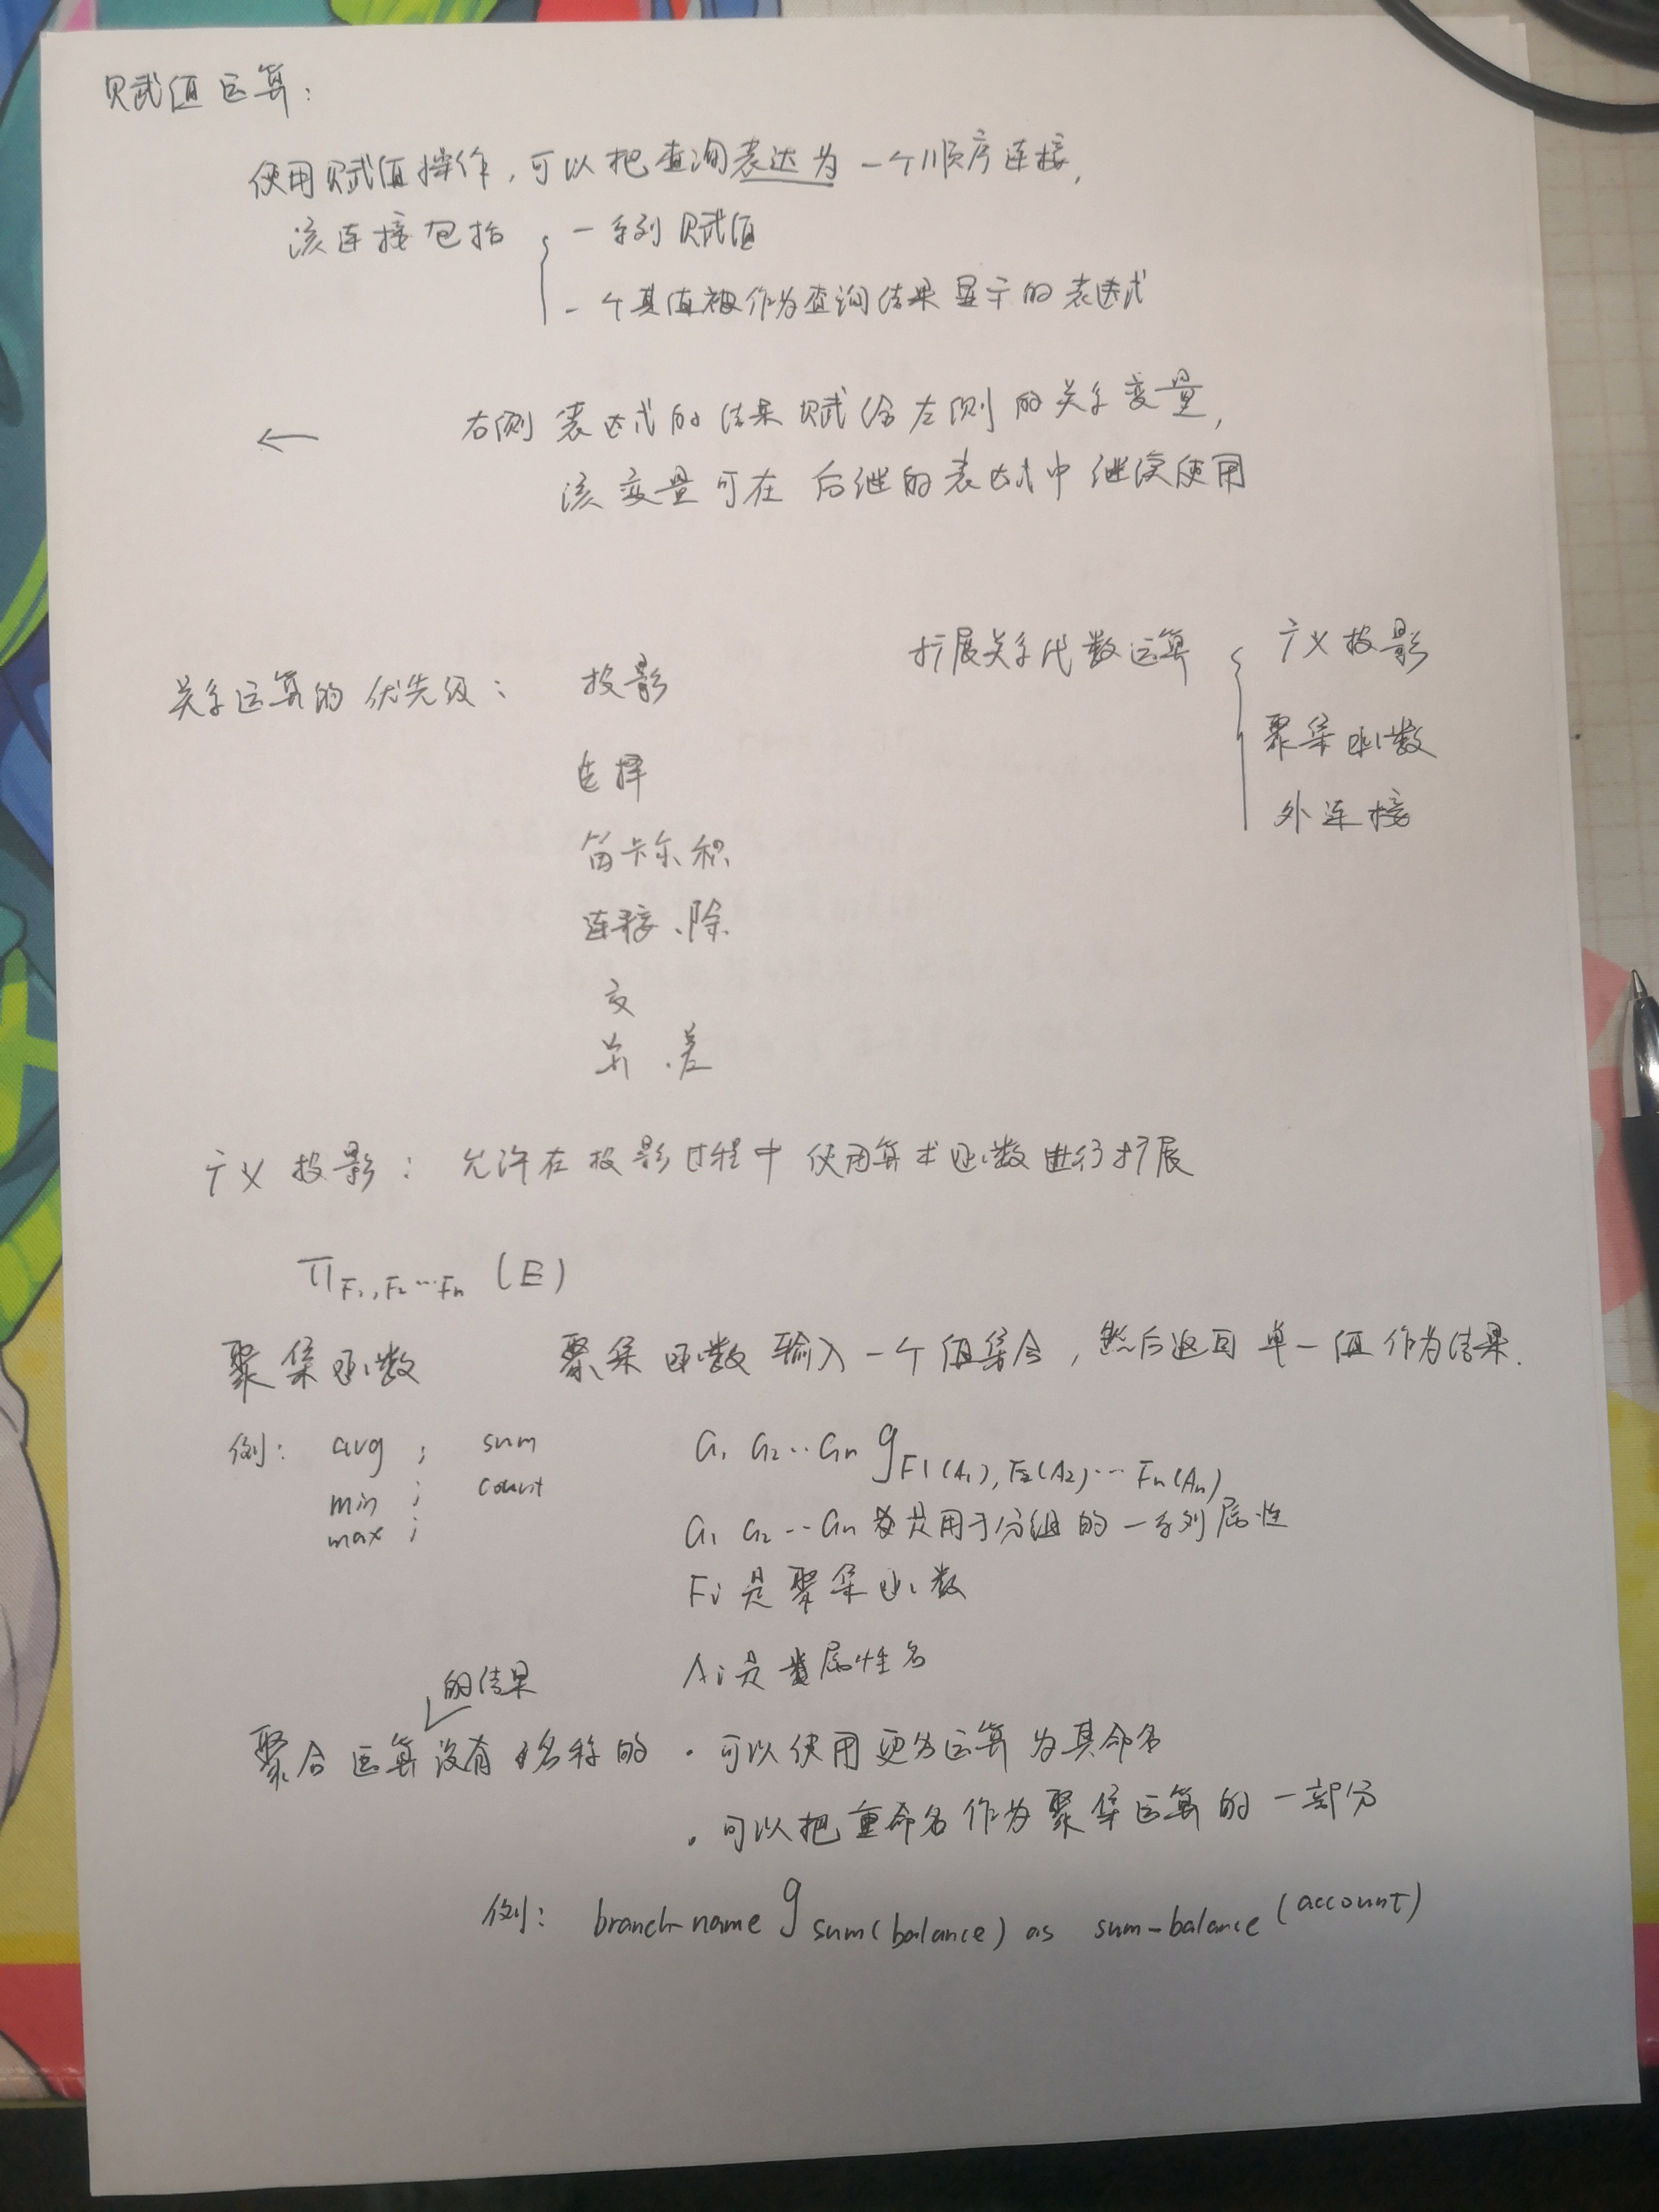 赋值运算：
使用赋值操作，可以把查询表达为一个顺序连接，
该连接包括 { 一系列赋值
一个其值被作为查询结果显示的表达式
← 右侧表达式的结果赋给左侧的关系变量，
该变量可在后继的表达式中继续使用
扩展关系代数运算 { 广义投影
聚集函数
外连接
关系运算的优先级： 投影
选择
笛卡尔积
连接、除
交
并、差
广义投影： 允许在投影过程中使用算术函数进行扩展
π F1, F2 … Fn (E)
聚集函数 聚集函数输入一个值集合，然后返回单一值作为结果.
例： avg ; sum
min ; count
max ;
G1 G2 … Gn g F1(A1), F2(A2) … Fn(An)
G1 G2 … Gn 是用于分组的一系列属性
Fi 是聚集函数
Ai 是属性名
的结果
聚合运算没有名称的 · 可以使用更名运算为其命名
· 可以把重命名作为聚集运算的一部分
例： branch-name g sum(balance) as sum-balance (account)